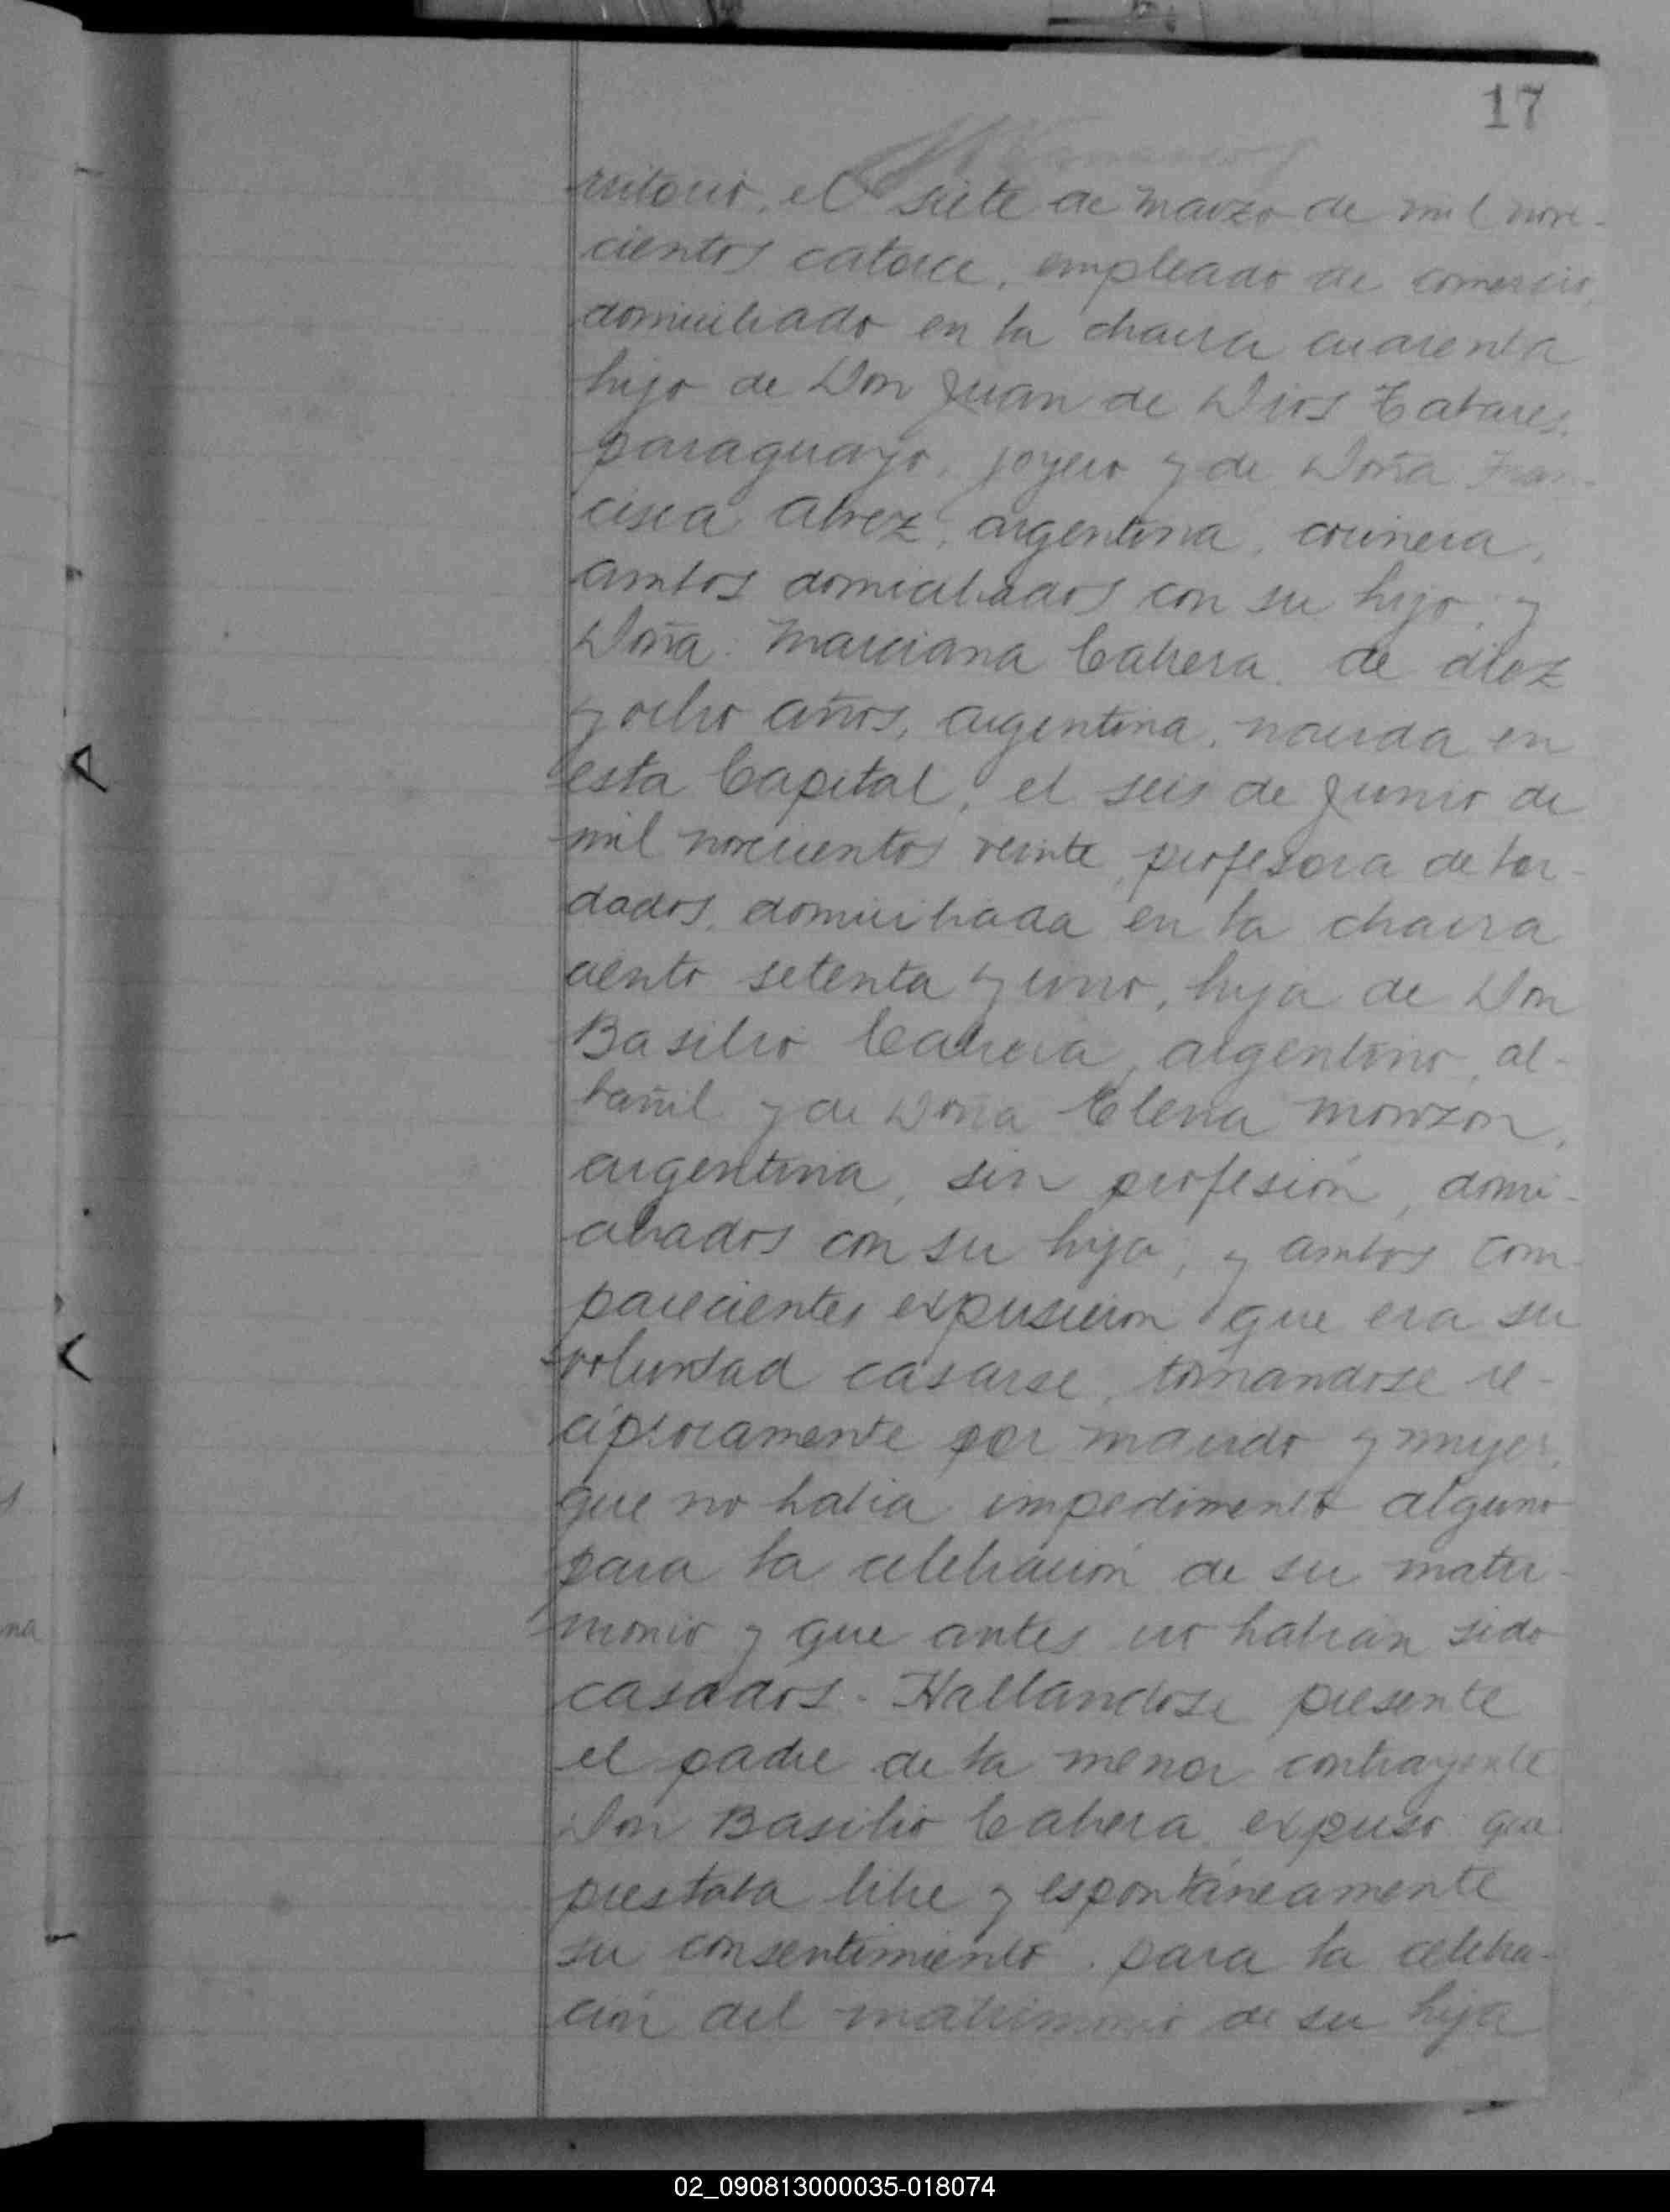 17
rritorio, el siete de Marzo de mil nove-
cientos catorce, empleado de comercio,
domiciliado en la chacra cuarenta
hijo de Don Juan de Dios Tabares,
paraguayo, joyero y de Doña Fran-
cisca Alvez, argentina, cocinera,
ambos domiciliados con su hijo; y
Doña Marciana Cabrera de diez
y ocho años, argentina, nacida en
esta Capital, el seis de Junio de
mil novecientos veinte, profesora de bor-
dados, domiciliada en la chacra
ciento setenta y uno, hija de Don
Basilio Cabrera, argentino, al-
bañil y de Doña Elena Monzon,
argentina, sin profesión, domi-
ciliados con su hija; y ambos com-
parecientes expusieron que era su
voluntad casarse, tomandose re-
ciprocamente por marido y mujer,
que no habia impedimento alguno
para la celebración de su matri-
monio y que antes no habian sido
casados. Hallandose presente
el padre de la menor contrayente
Don Basilio Cabrera, expuso que
prestaba libre y espontáneamente
su consentimiento para la celebra-
ción del matrimonio de su hija
02_090813000035-018074